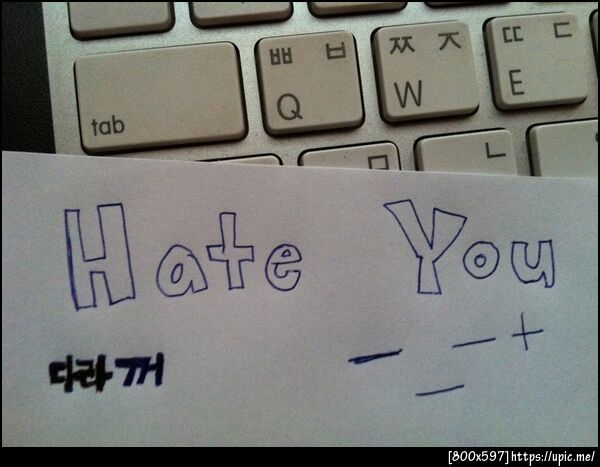 ㅃ ㅂ ㅉ ㅈ ㄸ ㄷ
tab Q W E
ㅁ ㄴ
Hate You
다라꺼 - _ - +
[800x597]https://upic.me/